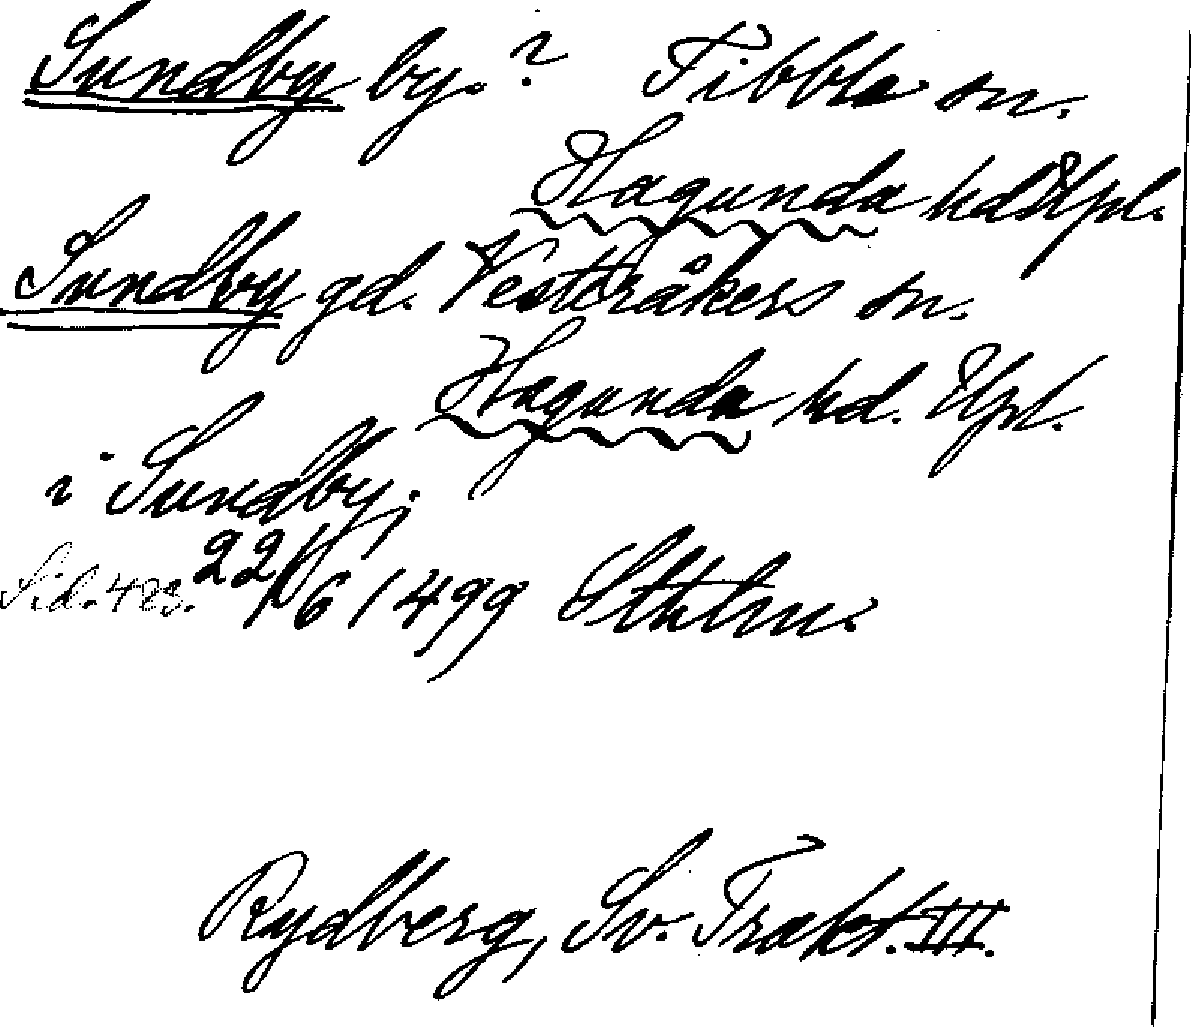 Sundby by. ? Tibble sn.
Hagunda hd Upl.
Sundby gd. Vesteråkers sn.
Hagunda hd. Upl.
i Sundby;
Sid. 423. 22/6 1499 Sthlm.
Rydberg, Sv. Trakt. III.